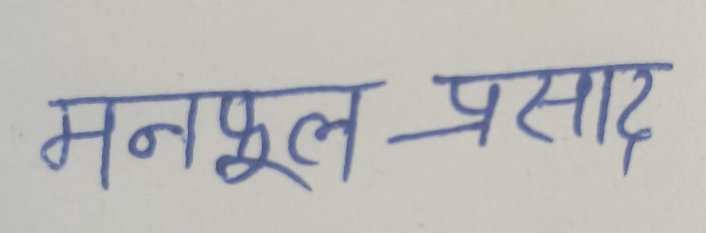 मनफूल प्रसाद